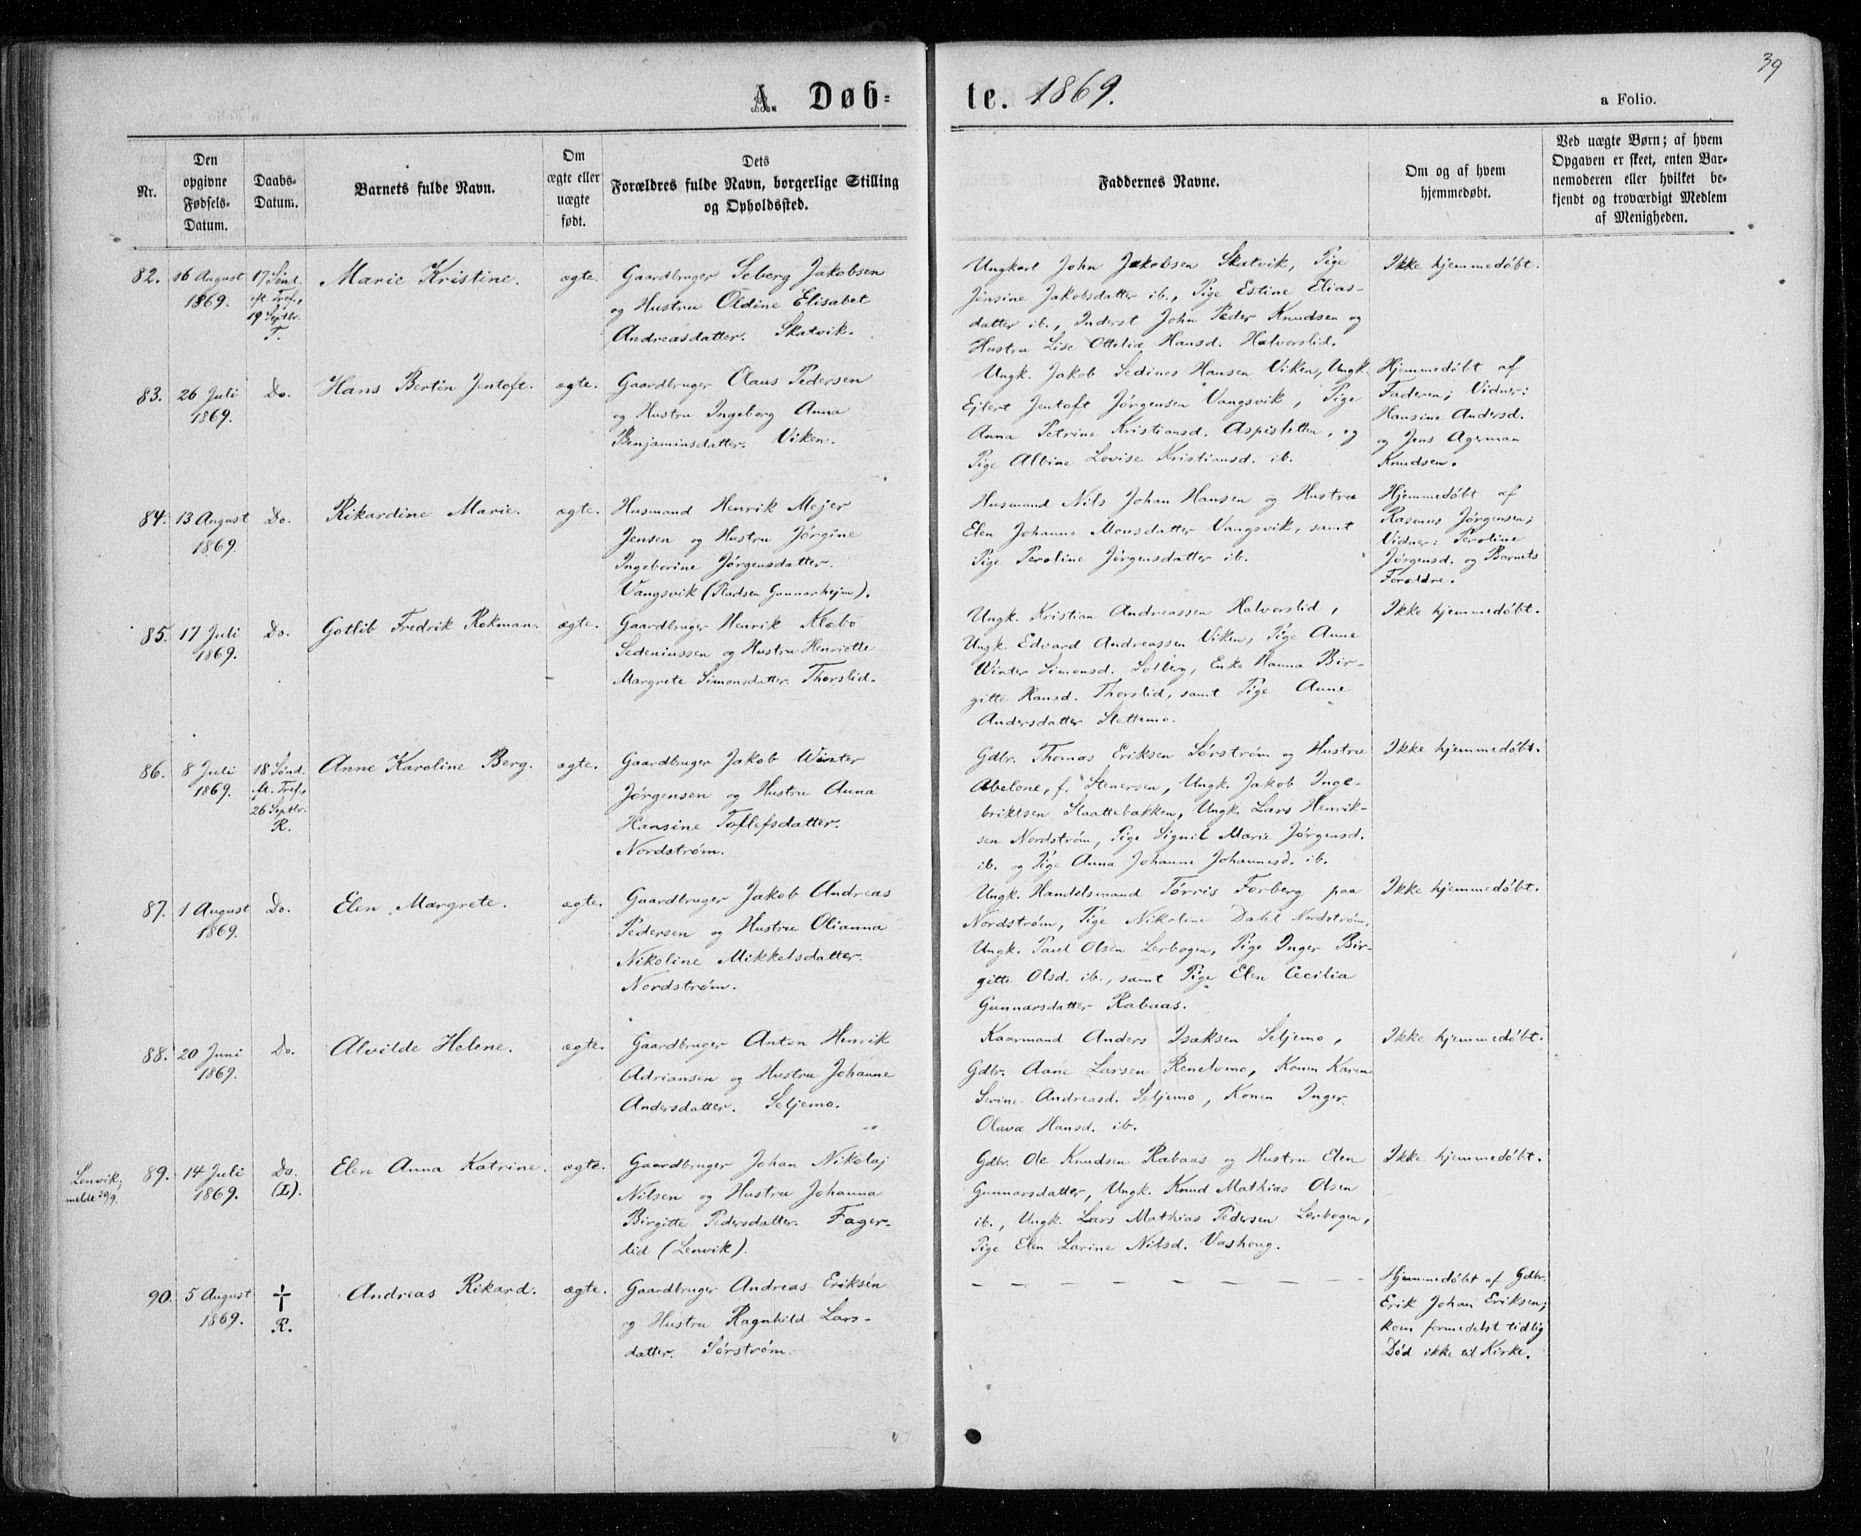 39
A. Døb-
te. 1869.
a Folio.
Nr.
Den
opgivne
Fødsels-
Datum.
Daabs-
Datum.
Barnets fulde Navn.
Om
ægte eller
uægte
født.
Dets
Forældres fulde Navn, borgerlige Stilling
og Opholdssted.
Faddernes Navne.
Om og af hvem
hjemmedøbt.
Ved uægte Børn; af hvem
Opgaven er skeet, enten Bar-
nemoderen eller hvilket be-
kjendt og troværdigt Medlem
af Menigheden.
82.
16 August
1869.
17 Sønd.
eft. Tref.,
19 Septbr.
T.
Marie Kristine.
ægte.
Gaardbruger Soberg Jakobsen
og Hustru Oldine Elisabet
Andreasdatter. Skatvik.
Ungkarl John Jakobsen Skatvik, Pige
Jensine Jakobsdatter ib., Pige Estine Elias-
datter ib., Inderst John Peder Knudsen og
Hustru Lise Ottelie Hansd. Halvorslid.
Ikke hjemmedøbt.
83.
26 Juli
1869.
Do.
Hans Bertin Jentoft.
ægte.
Gaardbruger Olaus Pedersen
og Hustru Ingeborg Anna
Benjaminsdatter. Viken.
Ungk. Jakob Sedines Hansen Viken, Ungk.
Ejlert Jentoft Jörgensen Vangsvik, Pige
Anna Petrine Kristiansd. Aspisletten, og
Pige Albine Lovise Kristiansd. ib.
Hjemmedøbt af
Faderen; Vidner:
Hansine Andersd.
og Jens Agerman
Knudsen.
84.
13 August
1869.
Do.
Rikardine Marie.
ægte.
Husmand Henrik Mejer
Jensen og Hustru Jörgine
Ingeborine Jörgensdatter.
Vangsvik (Pladsen Gunnarhejm).
Husmand Nils Johan Hansen og Hustru
Elen Johanne Monsdatter Vangsvik, samt
Pige Peroline Jörgensdatter ib.
Hjemmedøbt af
Rasmus Jørgensen;
Vidner: Peroline
Jörgensd. og Barnets
Forældre.
85.
17 Juli
1869.
Do.
Gotlib Fredrik Rokman.
ægte.
Gaardbruger Henrik Klæbo
Sedeniussen og Hustru Henriette
Margrete Simonsdatter. Thorslid.
Ungk. Kristian Andreassen Halvorslid,
Ungk. Edvard Andreassen Viken, Pige Anne
Winter Simonsd. Solberg, Enke Hanna Bir-
gitte Hansd. Thorslid, samt Pige Anne
Andersdatter Slettemo.
Ikke hjemmedøbt.
86.
8 Juli
1869.
18 Sønd.
M. Tref.,
26 Septbr.
R.
Anne Karoline Berg.
ægte.
Gaardbruger Jakob Winter
Jørgensen og Hustru Anna
Hansine Tollefsdatter.
Nordstrøm.
Gdbr. Thomas Eriksen Sørstrøm og Hustru
Abelone, f. Stenersen, Ungk. Jakob Inge-
briktsen Slaattebakken, Ungk. Lars Henrik-
sen Nordstrøm, Pige Signil Marie Jørgensd.
ib. og Pige Anna Johanne Johannesd. ib.
Ikke hjemmedøbt.
87.
1 August
1869.
Do.
Elen Margrete.
ægte.
Gaardbruger Jakob Andreas
Pedersen og Hustru Olianna
Nikoline Mikkelsdatter.
Nordstrøm.
Ungk. Handelsmand Törris Forberg paa
Nordstrøm, Pige Nikoline Dahl Nordstrøm,
Ungk. Paul Olsen Lerbogen, Pige Inger Bir-
gitte Olsd. ib., samt Pige Elen Cecilia
Gunnarsdatter Rabaas.
Ikke hjemmedøbt.
88.
20 Juni
1869.
Do.
Alvilde Helene.
ægte.
Gaardbruger Anton Henrik
Adriansen og Hustru Johanne
Andersdatter. Seljemo.
Kaarmand Anders Isaksen Seljemo,
Gdbr. Aane Larsen Renelvmo, Konen Karen
Serine Andreasd. Seljemo, Konen Inger
Olava Hansd. ib.
Ikke hjemmedøbt.
Lenvik;
melde 30/9.
89.
14 Juli
1869.
Do.
(L).
Elen Anna Katrine.
ægte.
Gaardbruger Johan Nikolaj
Nilsen og Hustru Johanna
Birgitte Pedersdatter. Fager-
lid (Lenvik).
Gdbr. Ole Knudsen Rabaas og Hustru Elen
Gunnarsdatter, Ungk. Knud Mathias Olsen
ib., Ungk. Lars Mathias Pedersen Lerbogen,
Pige Elen Larine Nilsd. Vashaug.
Ikke hjemmedøbt.
90.
5 August
1869.
†
R.
Andreas Rikard.
ægte.
Gaardbruger Andreas Eriksen
og Hustru Ragnhild Lars-
datter. Sørstrøm.
— — — — — — — — —
Hjemmedøbt af Gdbr.
Erik Johan Eriksen;
kom formedelst tidlig
Død ikke til Kirke.